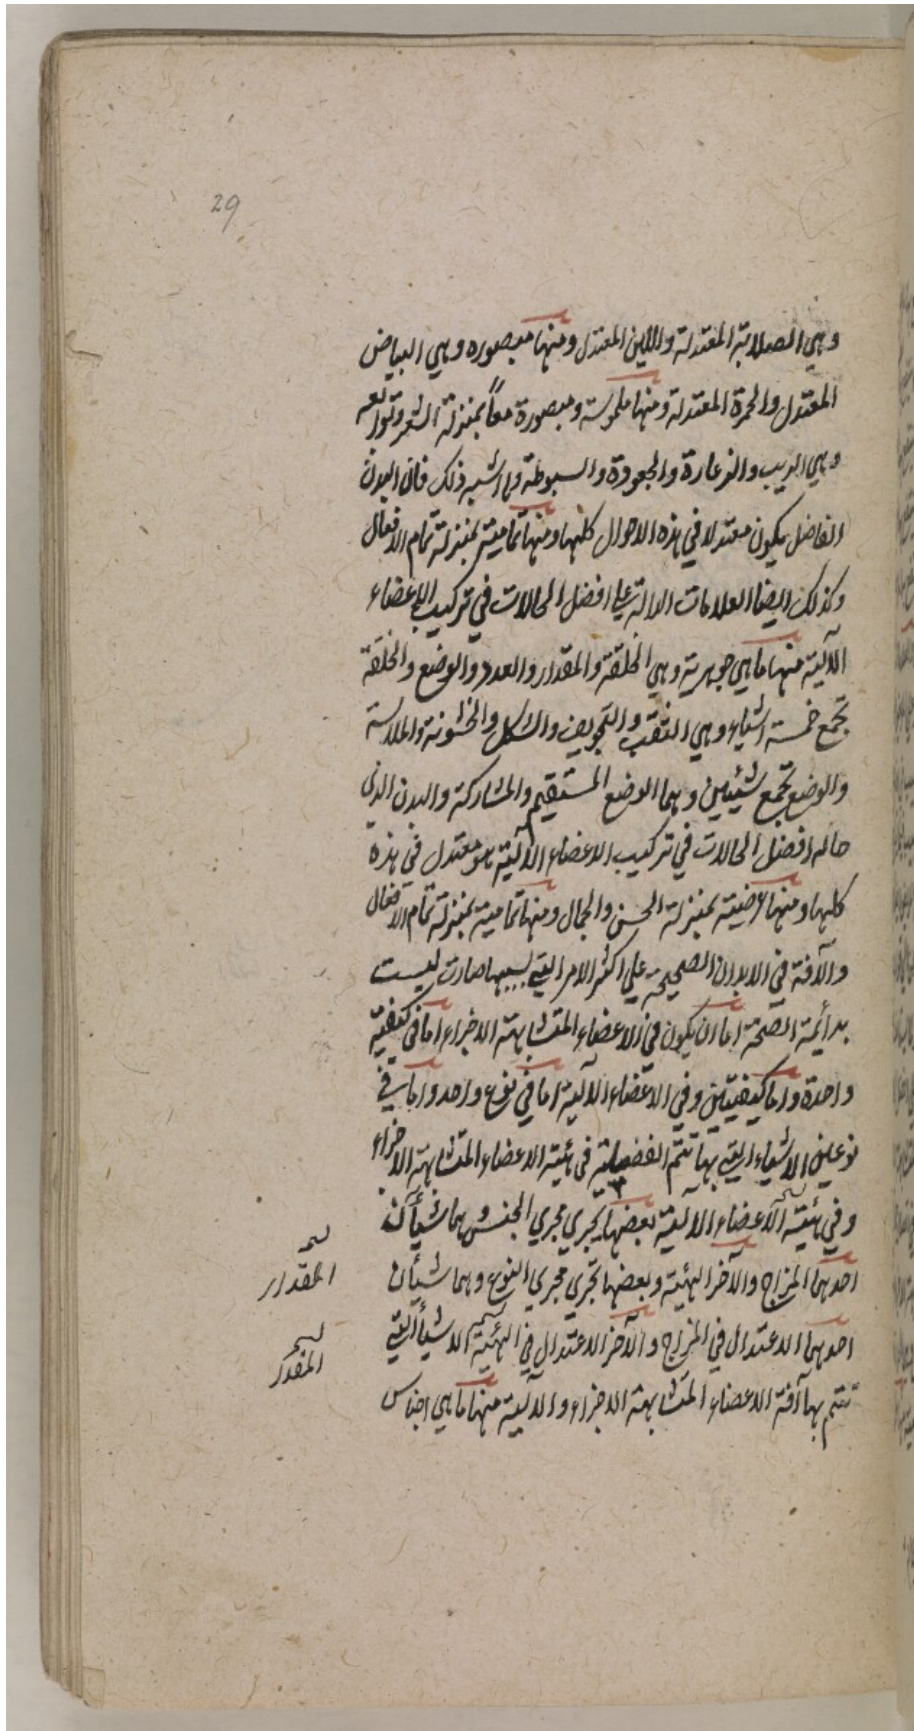 29
وهي الصلابة المعتدلة واللين المعتدل ومنها مبصوره وهي البياض
المعتدل والحمرة المعتدلة ومنها ملموسة ومبصورة معاً بمنزلة الشعر وتوابعه
وهي الزبب والزعارة والجعودة والسبوطة وما اشبه ذلك فان البدن
الفاضل يكون معتدلا في هذه الاحوال كلها ومنها تمامية بمنزلة تمام الافعال
وكذلك ايضا العلامات الدالة علي افضل الحالات في تركيب الاعضاء
الآلية منها ما هي جوهرية وهي الخلقة والمقدار والعدد والوضع والخلقة
تجمع خمسة اشياء وهي الثقب والتجويف والشكل والخشونة والملاسة
والوضع تجمع شيئين وهما الوضع المستقيم والمشاركة والبدن الذي
حاله افضل الحالات في تركيب الاعضاء الآلية هو معتدل في هذه
كلها ومنها عرضية بمنزلة الحسن والجمال ومنها تمامية بمنزلة تمام الافعال
والآفة في الابدان الصحيحة علي اكثر الامر التي بسببها صارت ليست
بدائمة الصحة اما ان يكون في الاعضاء المتشابهة الاجزاء اما في كيفية
واحدة واما كيفيتين وفي الاعضاء الآلية اما في نوع واحد واما في
نوعين الاشياء التي بها تتم الفضيلة في هيئة الاعضاء المتشابهة الاجزاء
وفي هيئة الاعضاء الآلية بعضها يجري مجري الجنس وهما شيأن
احدهما المزاج والآخر الهيئة وبعضها تجري مجري النوع وهما شيأن
احدهما الاعتدال في المزاج والآخر الاعتدال في الهيئة الاشيأ التي
تتم بها آفة الاعضاء المتشابهة الاجزاء والآلية منها ما هي اجناس
المقدار
المقدار